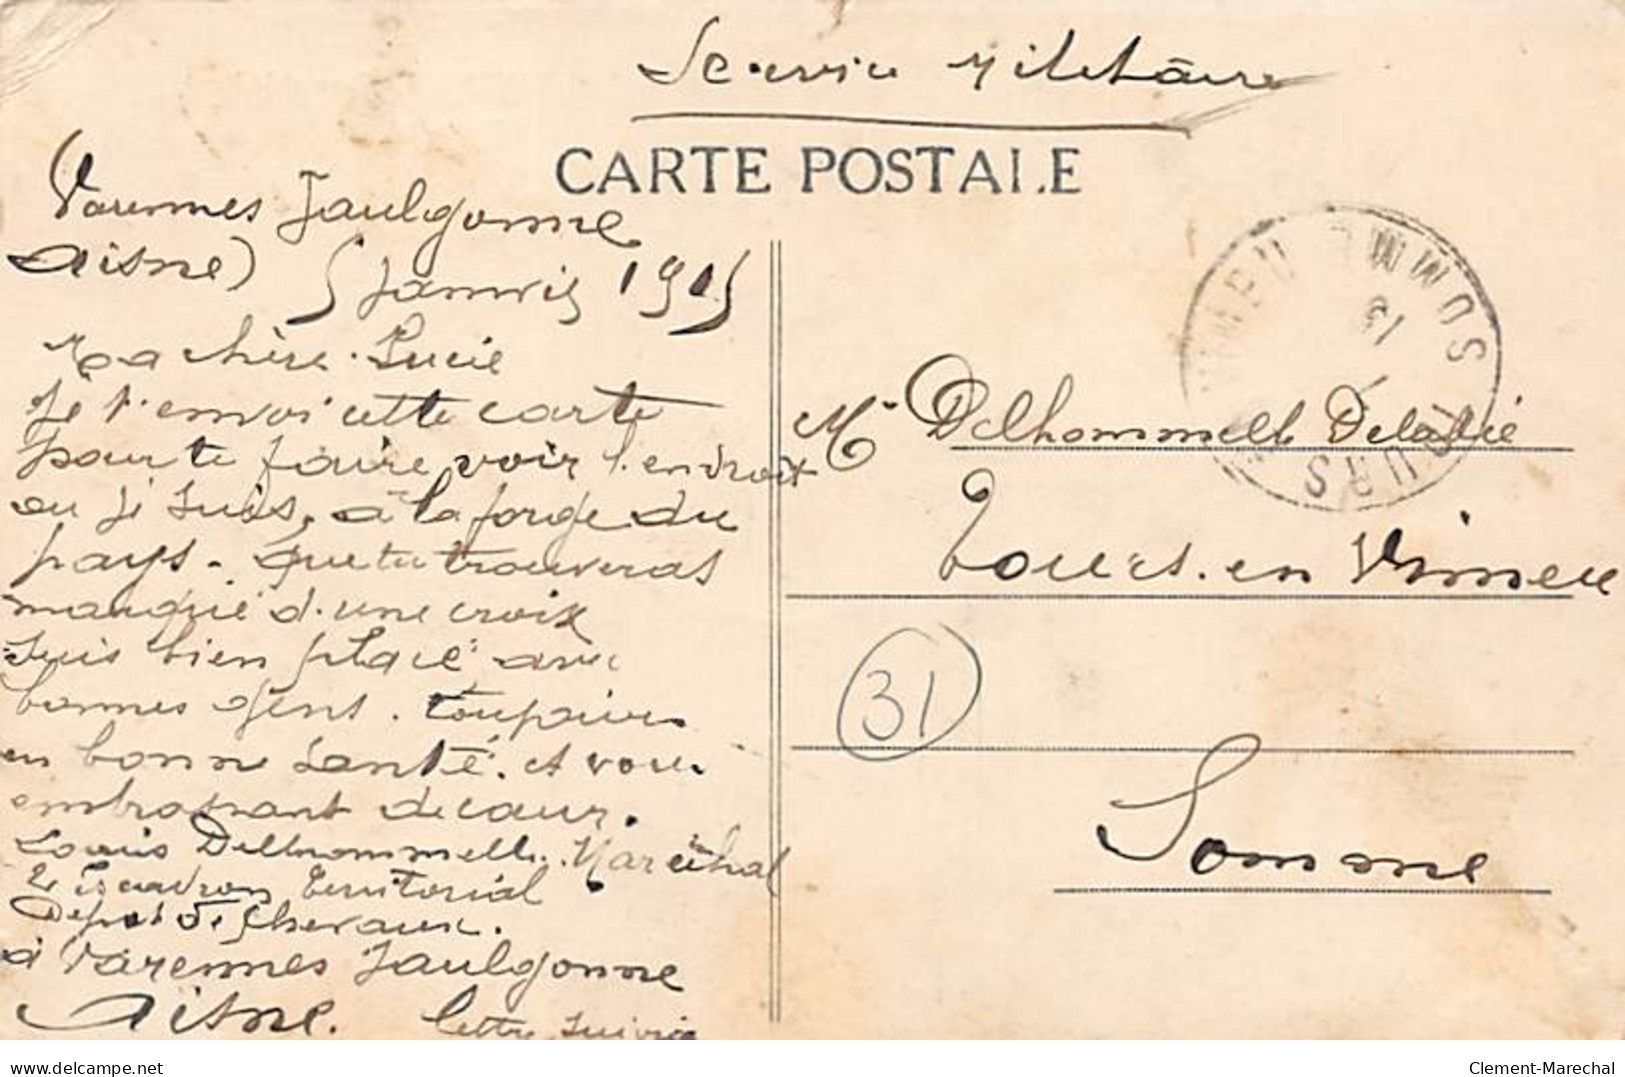 Service Militaire
CARTE POSTALE
Varennes Jaulgonne
Aisne) 5 Janvier 1915
Ma chère Lucie
Je t'envoi cette carte
pour te faire voir l'endroit
ou je suis, a la forge du
pays. que tu trouveras
marqué d'une croix
suis bien placé avec
bonnes gens. toujours
en bonne santé. et vous
embrassant de cœur.
Louis Delhommelle. Maréchal
2e Escadron Territorial
Depot de Chevaux.
à Varennes Jaulgonne
Aisne. lettre suivra
SOMME
TOURS EN VIMEU
Me Delhommelle Delattre
Tours. en Vimeu
31
Somme
www.delcampe.net
Clement-Marechal